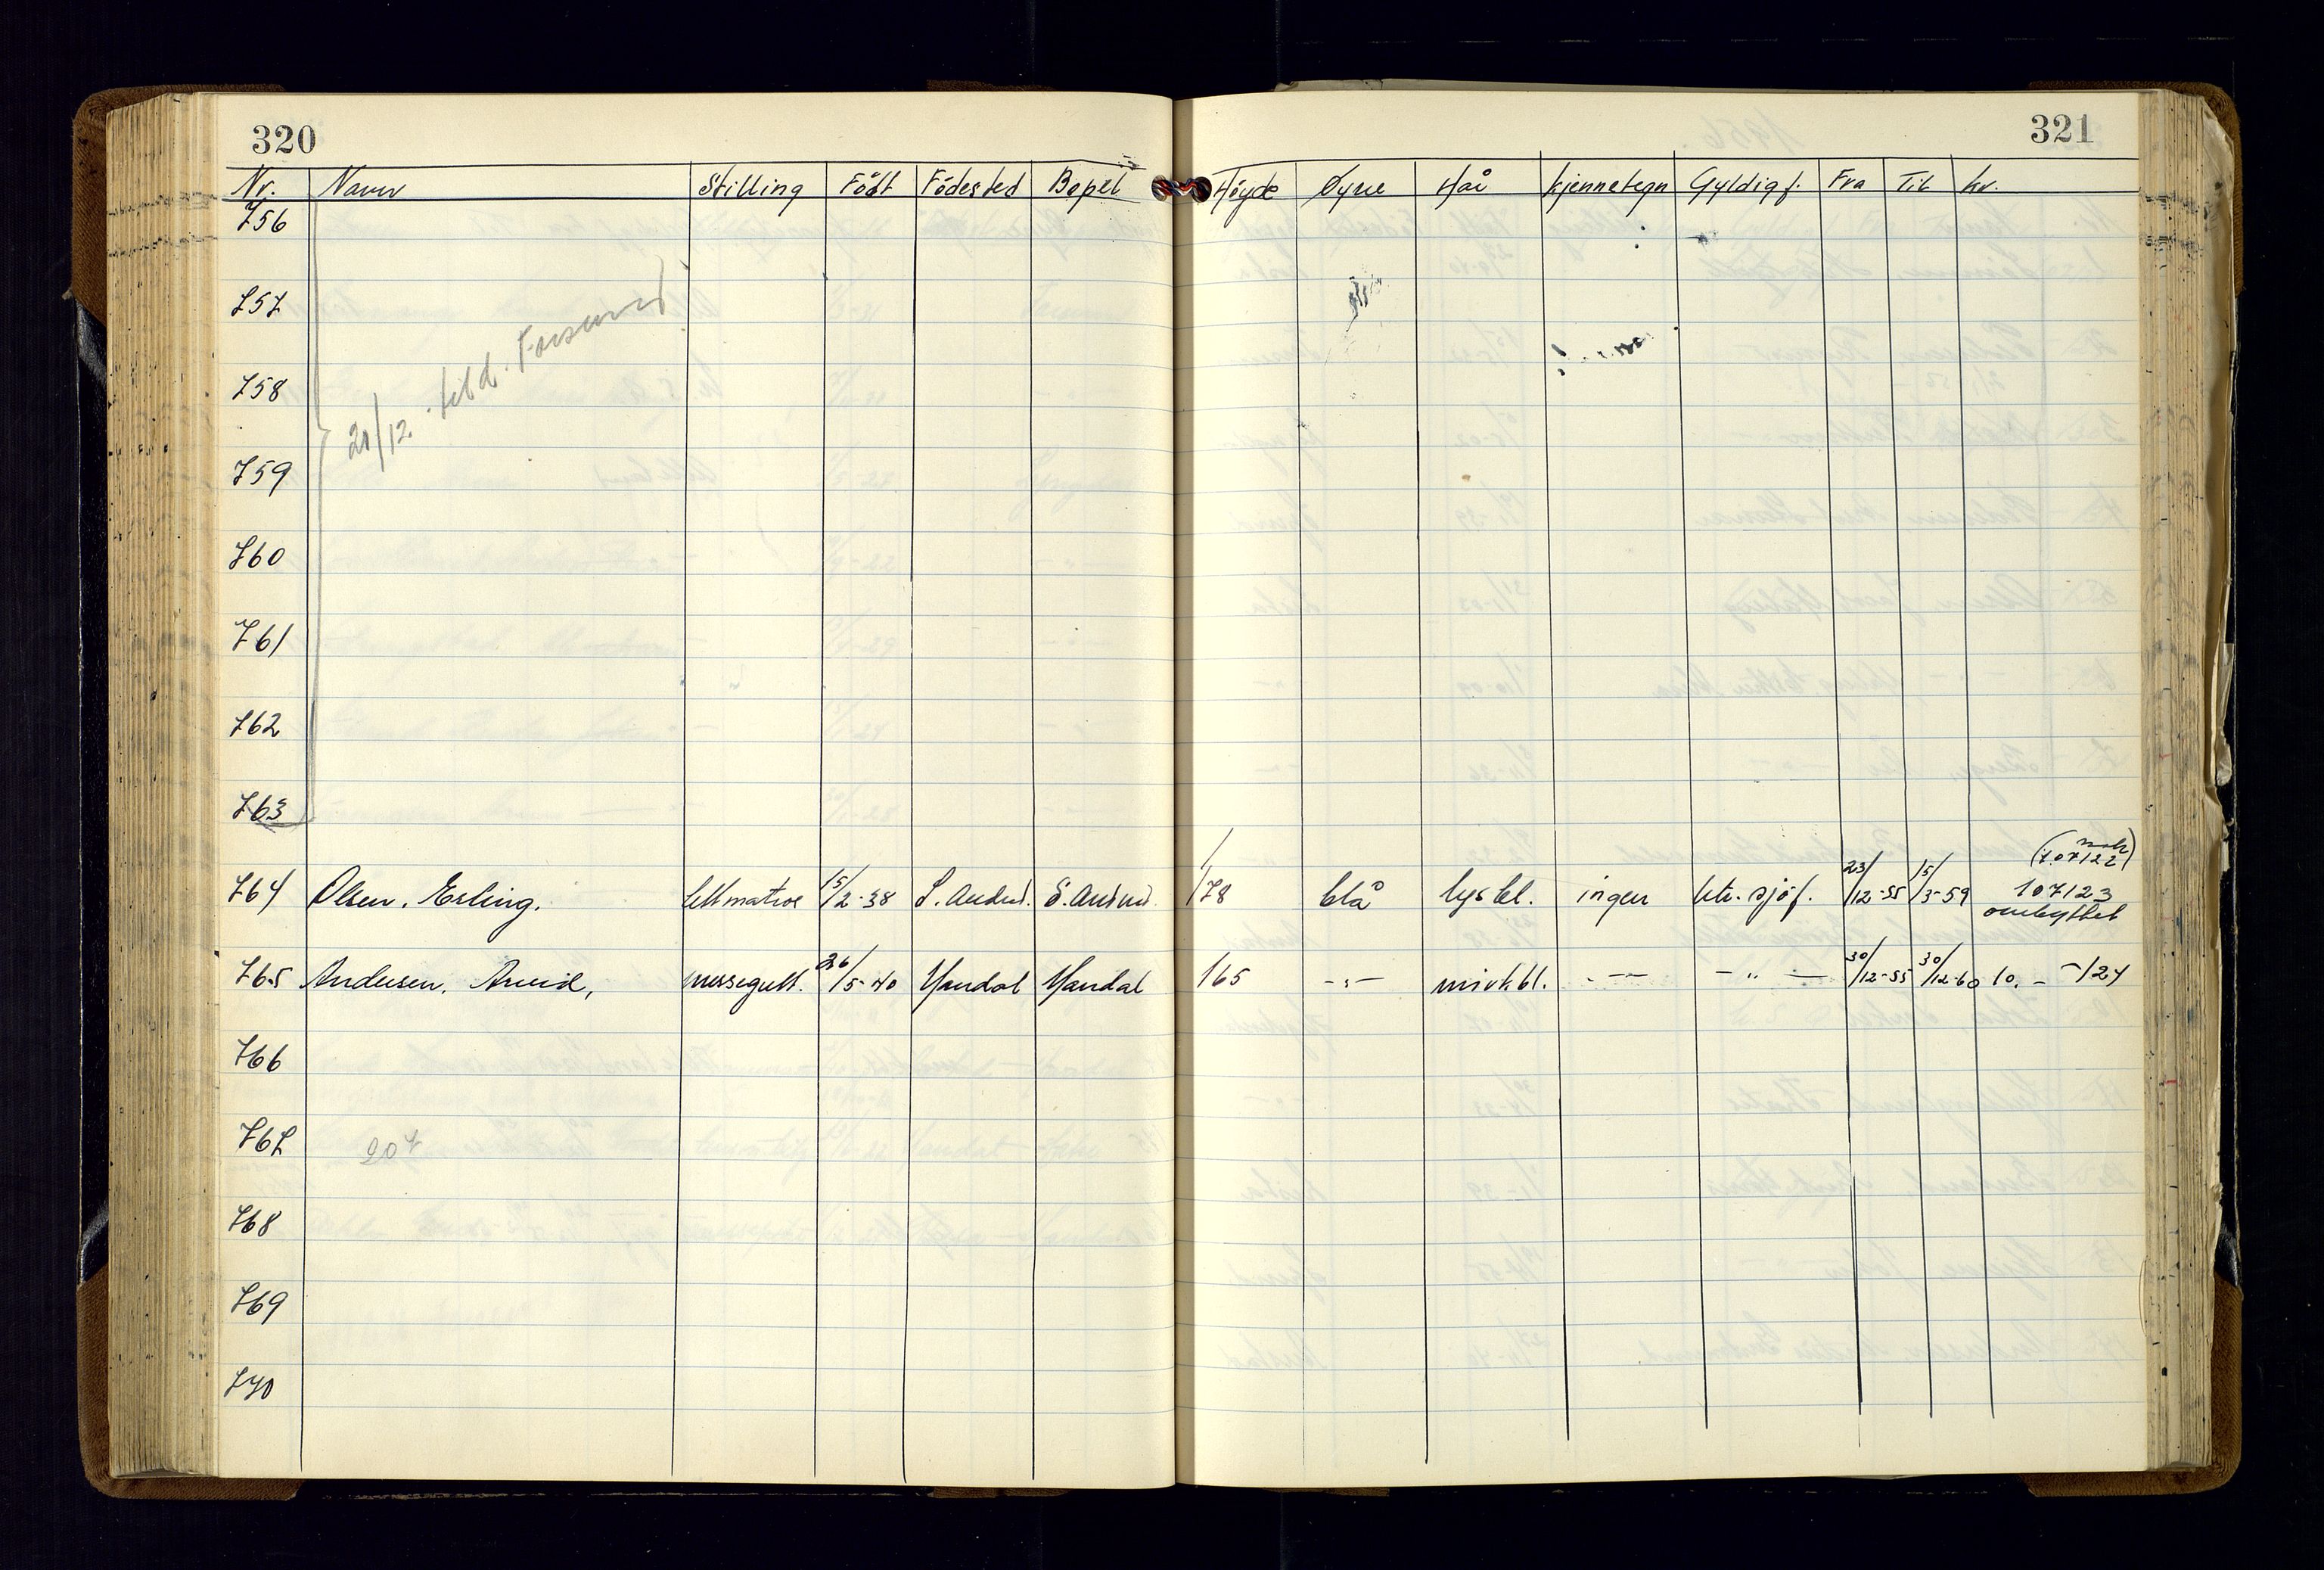 320
321
Nr. Navn Stilling Födt Födested Bopel Høyde Øyne Hår Kjennetegn Gyldig f. Fra Til kv.
756
757
20/12 tild.
758
759
760
761
762
763
764 Olsen, Erling. lettmatros 15/2-38 S. Audned. S. Audned. 178 blå lys bl. ingen utr. sjöf. 23/12-55 15/3-59 107123
(107122)
ombyttet
765 Andersen, Arvid, messegutt. 26/5-40 Mandal Mandal 165 -"- mörkbl. -"- -"- 30/12-55 30/12-60 10. - -124
766
767
204
768
769
770